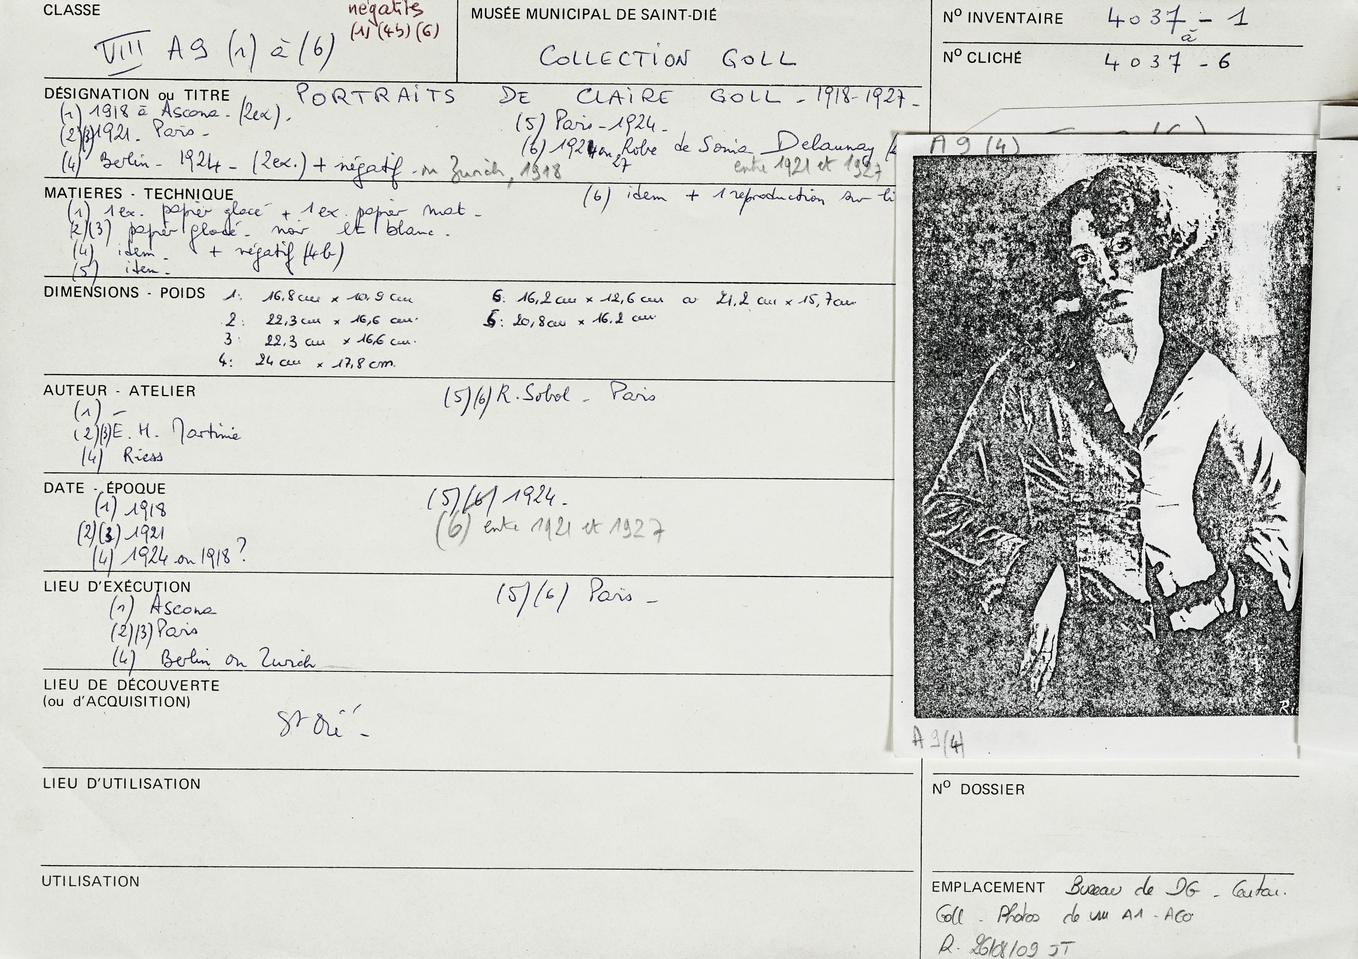 CLASSE
négatifs
(1) (4b) (6)
VIII A9 (1) à (6)
MUSÉE MUNICIPAL DE SAINT-DIÉ
COLLECTION GOLL
N° INVENTAIRE 4037 - 1
à
N° CLICHÉ 4037 - 6
DÉSIGNATION ou TITRE PORTRAITS DE CLAIRE GOLL - 1918-1927 -
(1) 1918 à Ascona - (2ex).
(2)(3) 1921 - Paris -
(4) Berlin - 1924 - (2ex.) + négatif - ou Zurich, 1918
(5) Paris - 1924 -
(6) 1924 ou 27 Robe de Sonia Delaunay
entre 1921 et 1927
MATIERES - TECHNIQUE
(1) 1 ex. papier glacé + 1 ex. papier mat -
2)(3) papier glacé - noir et blanc -
(4) idem - + négatif (4b)
(5) idem -
(6) idem + 1 reproduction sur
DIMENSIONS - POIDS
1: 16,8 cm x 10,9 cm
2: 22,3 cm x 16,6 cm.
3: 22,3 cm x 16,6 cm.
4: 24 cm x 17,8 cm.
6: 16,2 cm x 12,6 cm ou 21,2 cm x 15,7 cm
5: 20,8 cm x 16,2 cm
AUTEUR - ATELIER
(1) -
(2)(3) E. H. Martinie
(4) Riess
(5)(6) R. Sobol - Paris
DATE - ÉPOQUE
(1) 1918
(2)(3) 1921
(4) 1924 ou 1918 ?
(5)(6) 1924 -
(6) entre 1921 et 1927
LIEU D'EXÉCUTION
(1) Ascona
(2)(3) Paris
(4) Berlin ou Zurich
(5)(6) Paris -
LIEU DE DÉCOUVERTE
(ou d'ACQUISITION)
St Dié -
LIEU D'UTILISATION
UTILISATION
A 9 (4)
A 9 (4)
N° DOSSIER
EMPLACEMENT Bureau de DG -
Goll - Photos de A1 -
R. 26/08/09 JT